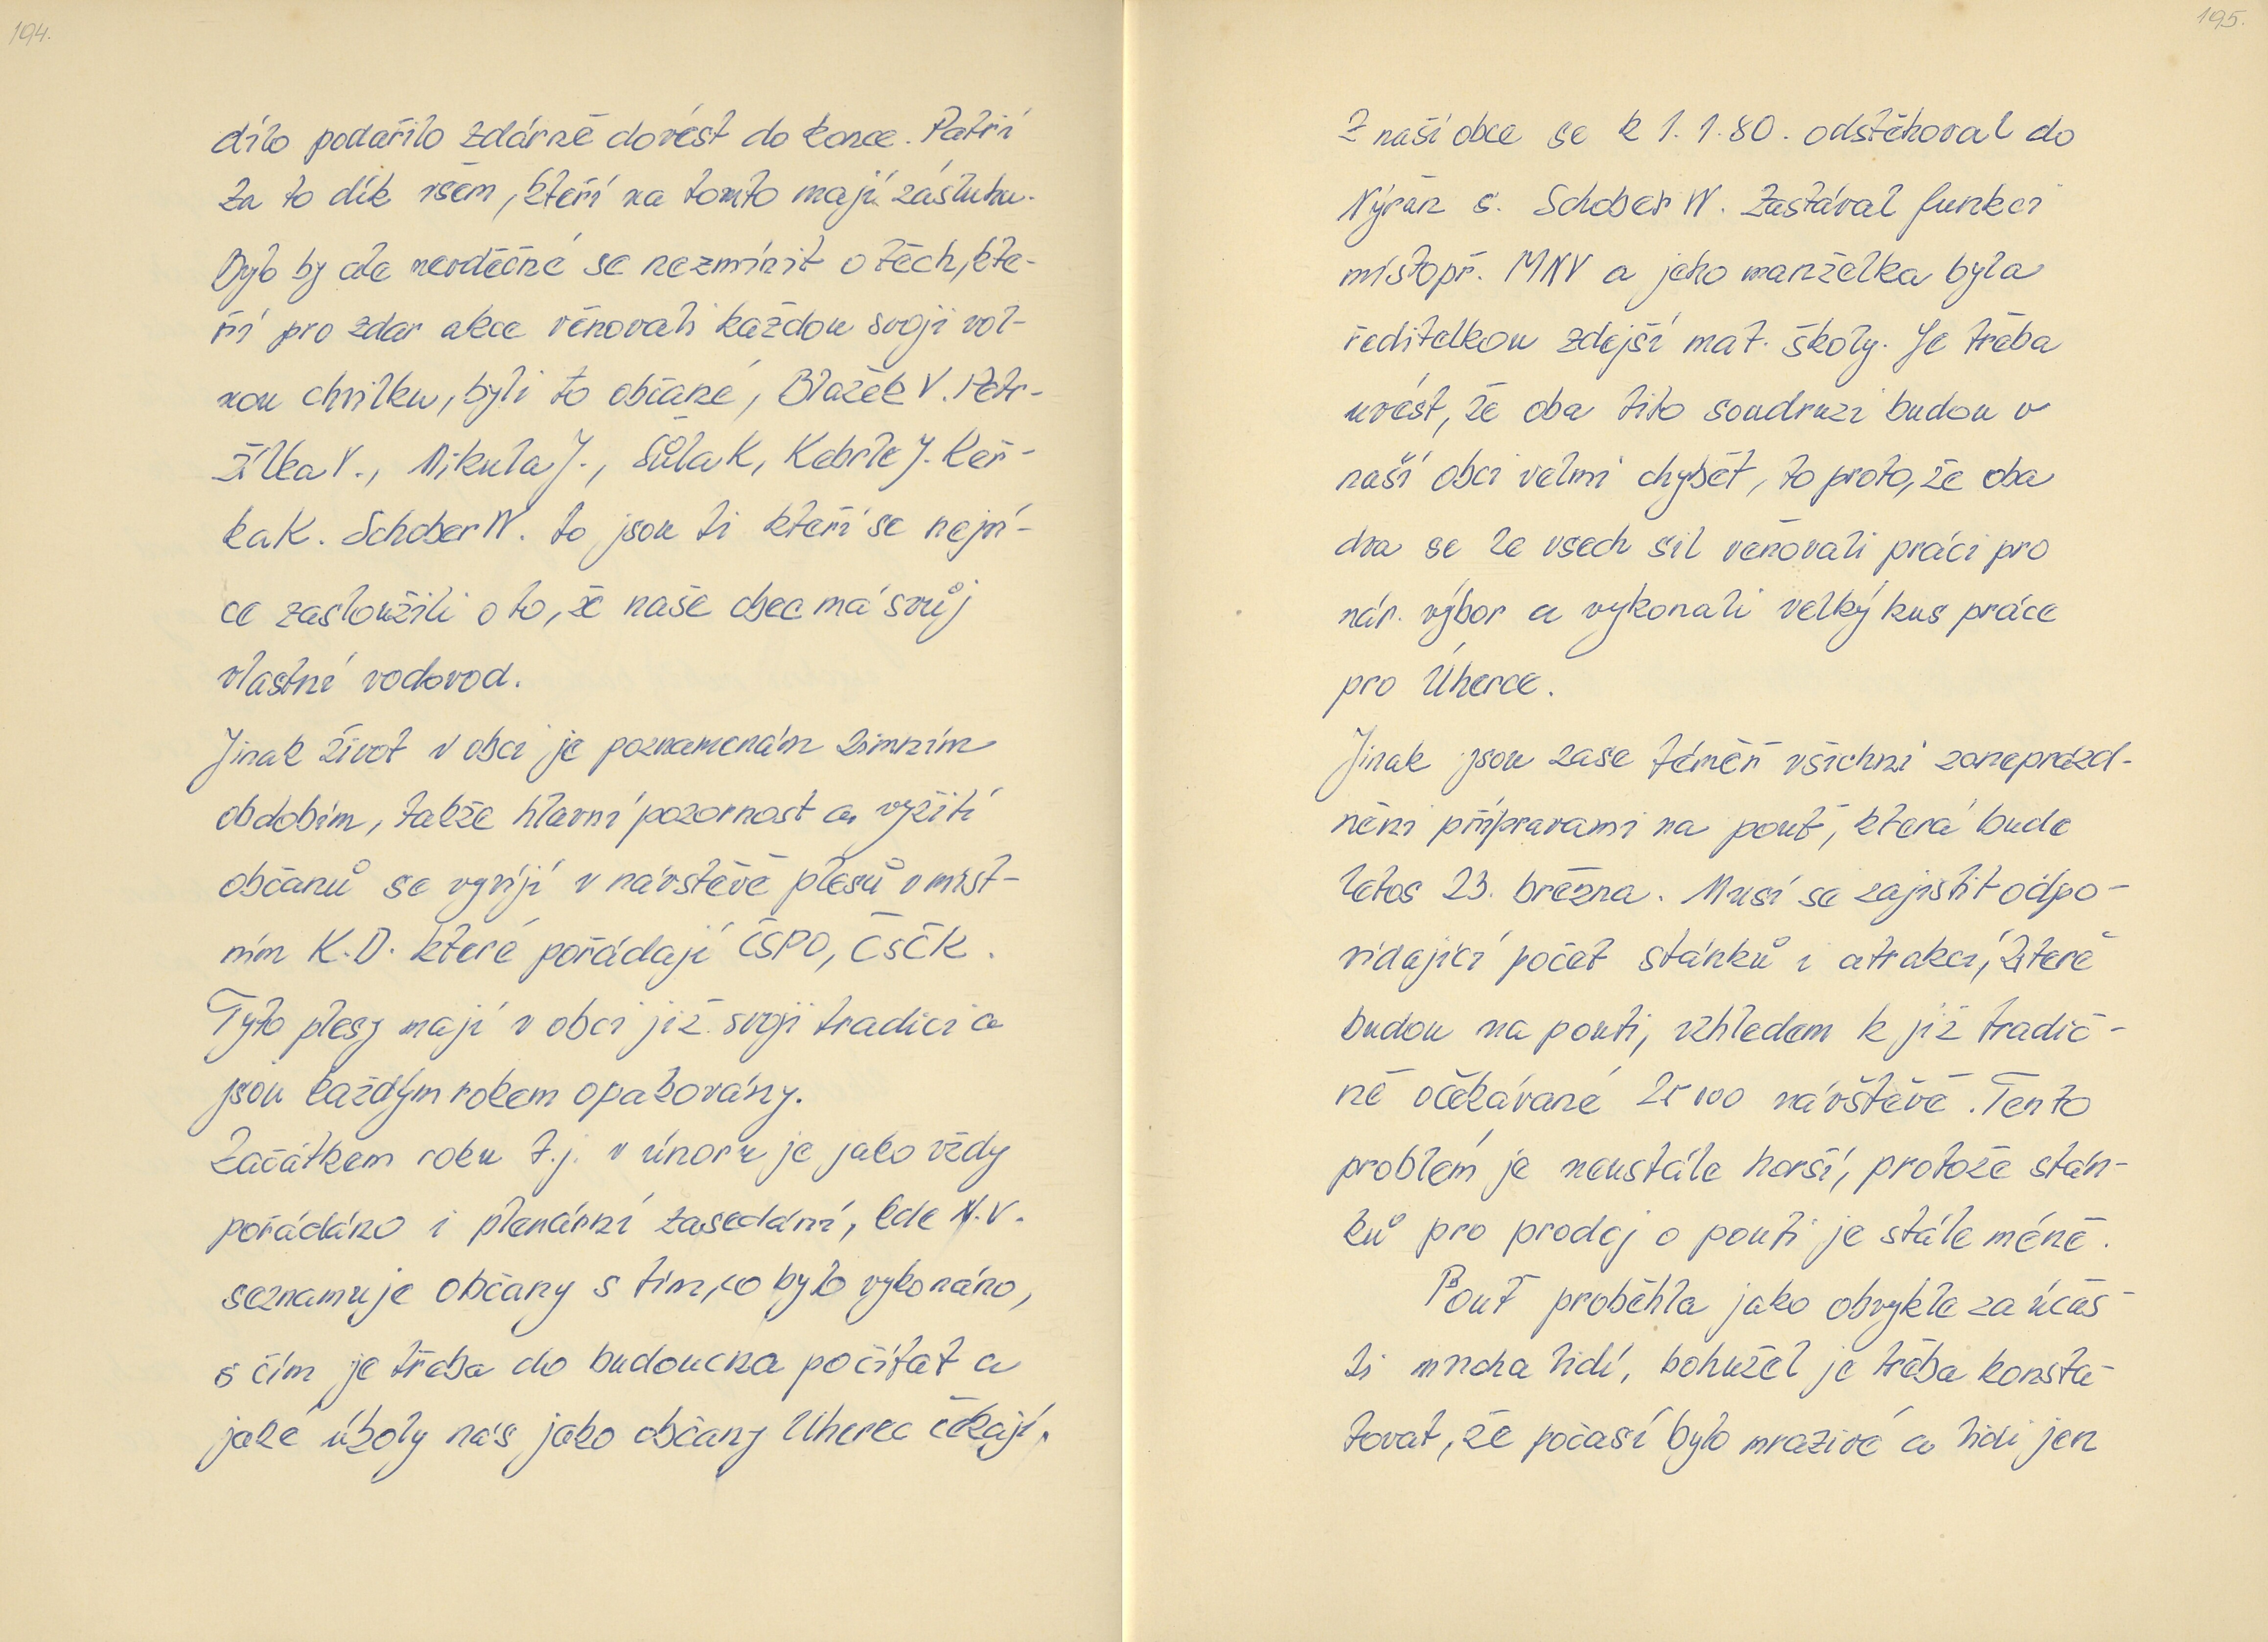 194.
dílo podařilo zdárně dovést do konce. Patří
za to dík všem, kteří na tomto mají zásluhu.
Bylo by ale nevděčné se nezmínit o těch, kte-
ří pro zdar akce věnovali každou svoji vol-
nou chvilku, byli to občané, Blažek V. Petr-
žílka V., Mikula J., Šůla K, Kebrle J. Keř-
ka K. Schober W. to jsou ti kteří se nejví-
ce zasloužili o to, že naše obec má svůj
vlastní vodovod.
Jinak život v obci je poznamenán zimním
obdobím, takže hlavní pozornost a vyžití
občanů se vyvíjí v návštěvě plesů v míst-
ním K.D. které pořádají ČSPO, ČSČK.
Tyto plesy mají v obci již svoji tradici a
jsou každým rokem opakovány.
Začátkem roku t.j. v únoru je jako vždy
pořádáno i plenární zasedání, kde N.V.
seznamuje občany s tím, co bylo vykonáno,
s čím je třeba do budoucna počítat a
jaké úkoly nás jako občany Úherec čekají.
195.
Z naší obce se k 1.1.80. odstěhoval do
Nýřan s. Schober W. Zastával funkci
místopř. MNV a jeho manželka byla
ředitelkou zdejší mat. školy. Je třeba
uvést, že oba tito soudruzi budou v
naší obci velmi chybět, to proto, že oba
dva se ze všech sil věnovali práci pro
nár. výbor a vykonali velký kus práce
pro Úherce.
Jinak jsou zase téměř všichni zaneprázd-
něni přípravami na pouť, která bude
letos 23. března. Musí se zajistit odpo-
vídající počet stánků i atrakcí, které
budou na pouti, vzhledem k již tradič-
ně očekávané 25 000 návštěvě. Tento
problém je neustále horší, protože stán-
ků pro prodej o pouti je stále méně.
Pouť proběhla jako obvykle za účas-
ti mnoha lidí, bohužel je třeba konsta-
tovat, že počasí bylo mrazivé a lidi jen